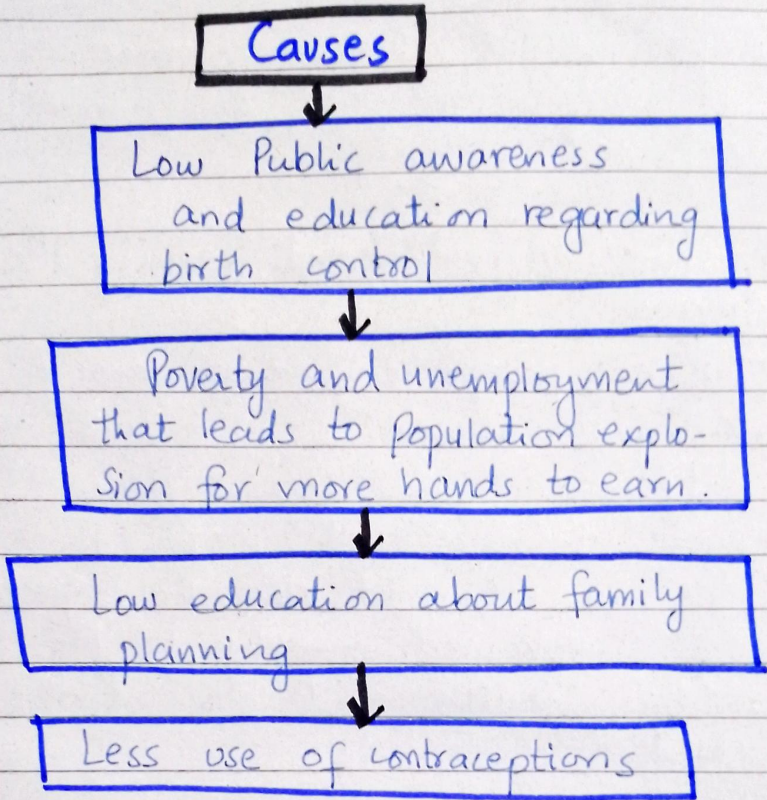 Causes
Low Public awareness
and education regarding
birth control
Poverty and unemployment
that leads to Population explo-
sion for more hands to earn.
Low education about family
planning
Less use of contraceptions